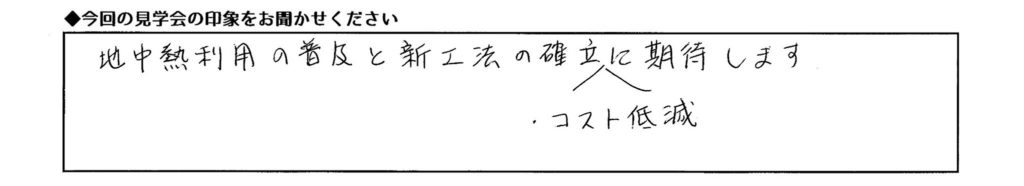 ◆今回の見学会の印象をお聞かせください
地中熱利用の普及と新工法の確立に期待します
・コスト低減